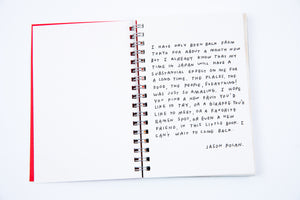 I HAVE ONLY BEEN BACK FROM
TOKYO FOR ABOUT A MONTH NOW
BUT I ALREADY KNOW THAT MY
TIME IN JAPAN WILL HAVE A
SUBSTANTIAL EFFECT ON ME FOR
A LONG TIME. THE PLACES, THE
FOOD, THE PEOPLE, EVERYTHING!
WAS JUST SO AMAZING. I HOPE
YOU FIND A NEW PRINT YOU'D
LIKE TO TRY, OR A GIRAFFE YOU'D
LIKE TO MEET, OR A FAVORITE
RAMEN SPOT, OR EVEN A NEW
FRIEND, IN THIS LITTLE BOOK. I
CAN'T WAIT TO COME BACK.
JASON POLAN.